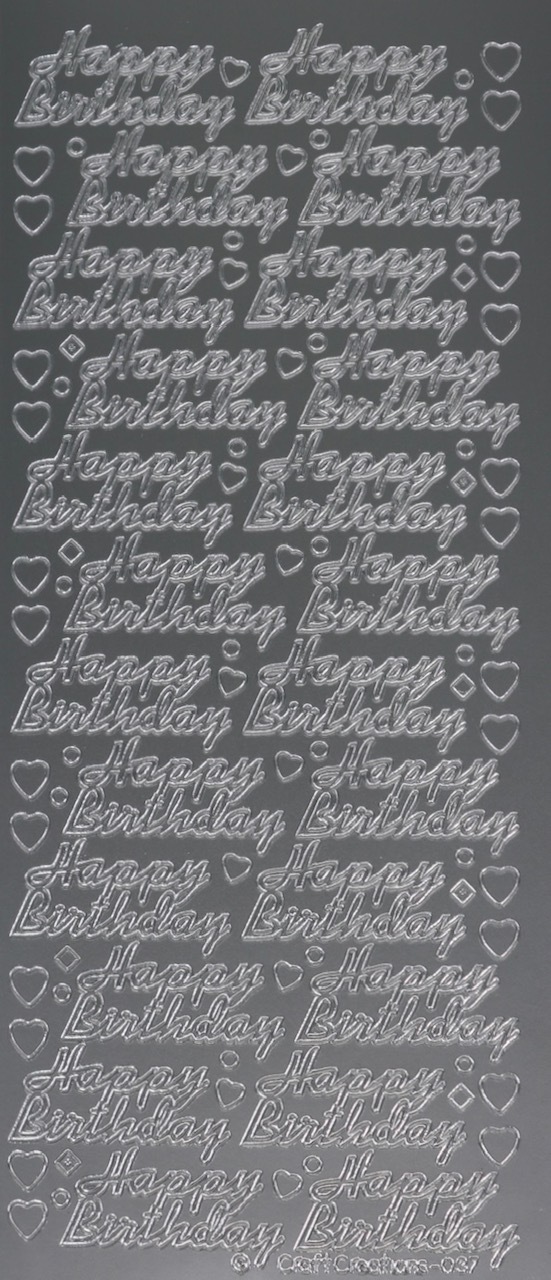 Happy Happy
Birthday Birthday
Happy Happy
Birthday Birthday
Happy Happy
Birthday Birthday
Happy Happy
Birthday Birthday
Happy Happy
Birthday Birthday
Happy Happy
Birthday Birthday
Happy Happy
Birthday Birthday
Happy Happy
Birthday Birthday
Happy Happy
Birthday Birthday
Happy Happy
Birthday Birthday
Happy Happy
Birthday Birthday
Happy Happy
Birthday Birthday
© Craft Creations-037